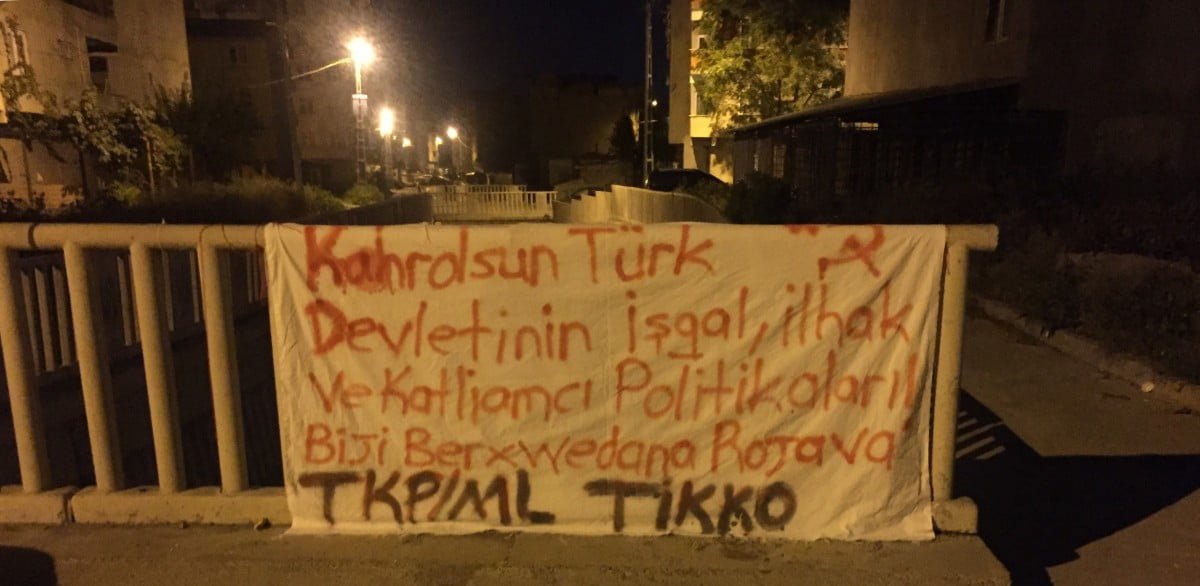 Kahrolsun Türk
Devletinin işgal, ilhak
ve Katliamcı Politikaları!
Biji Berxwedana Rojava
TKP/ML TİKKO